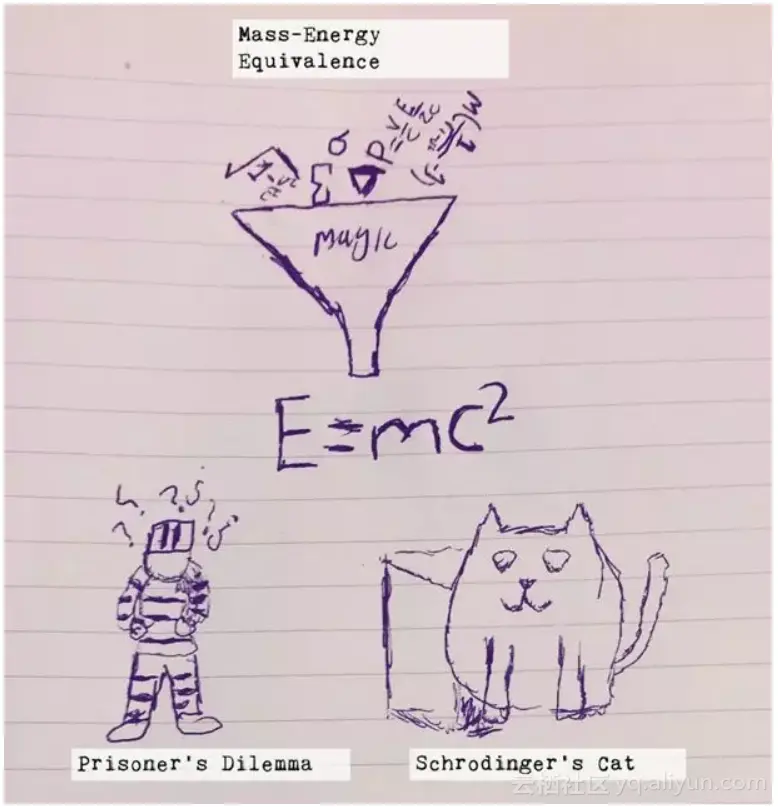 Mass-Energy
Equivalence
σ
Σ
magic
E=mc²
Prisoner's Dilemma
Schrodinger's Cat
云栖社区 yq.aliyun.com